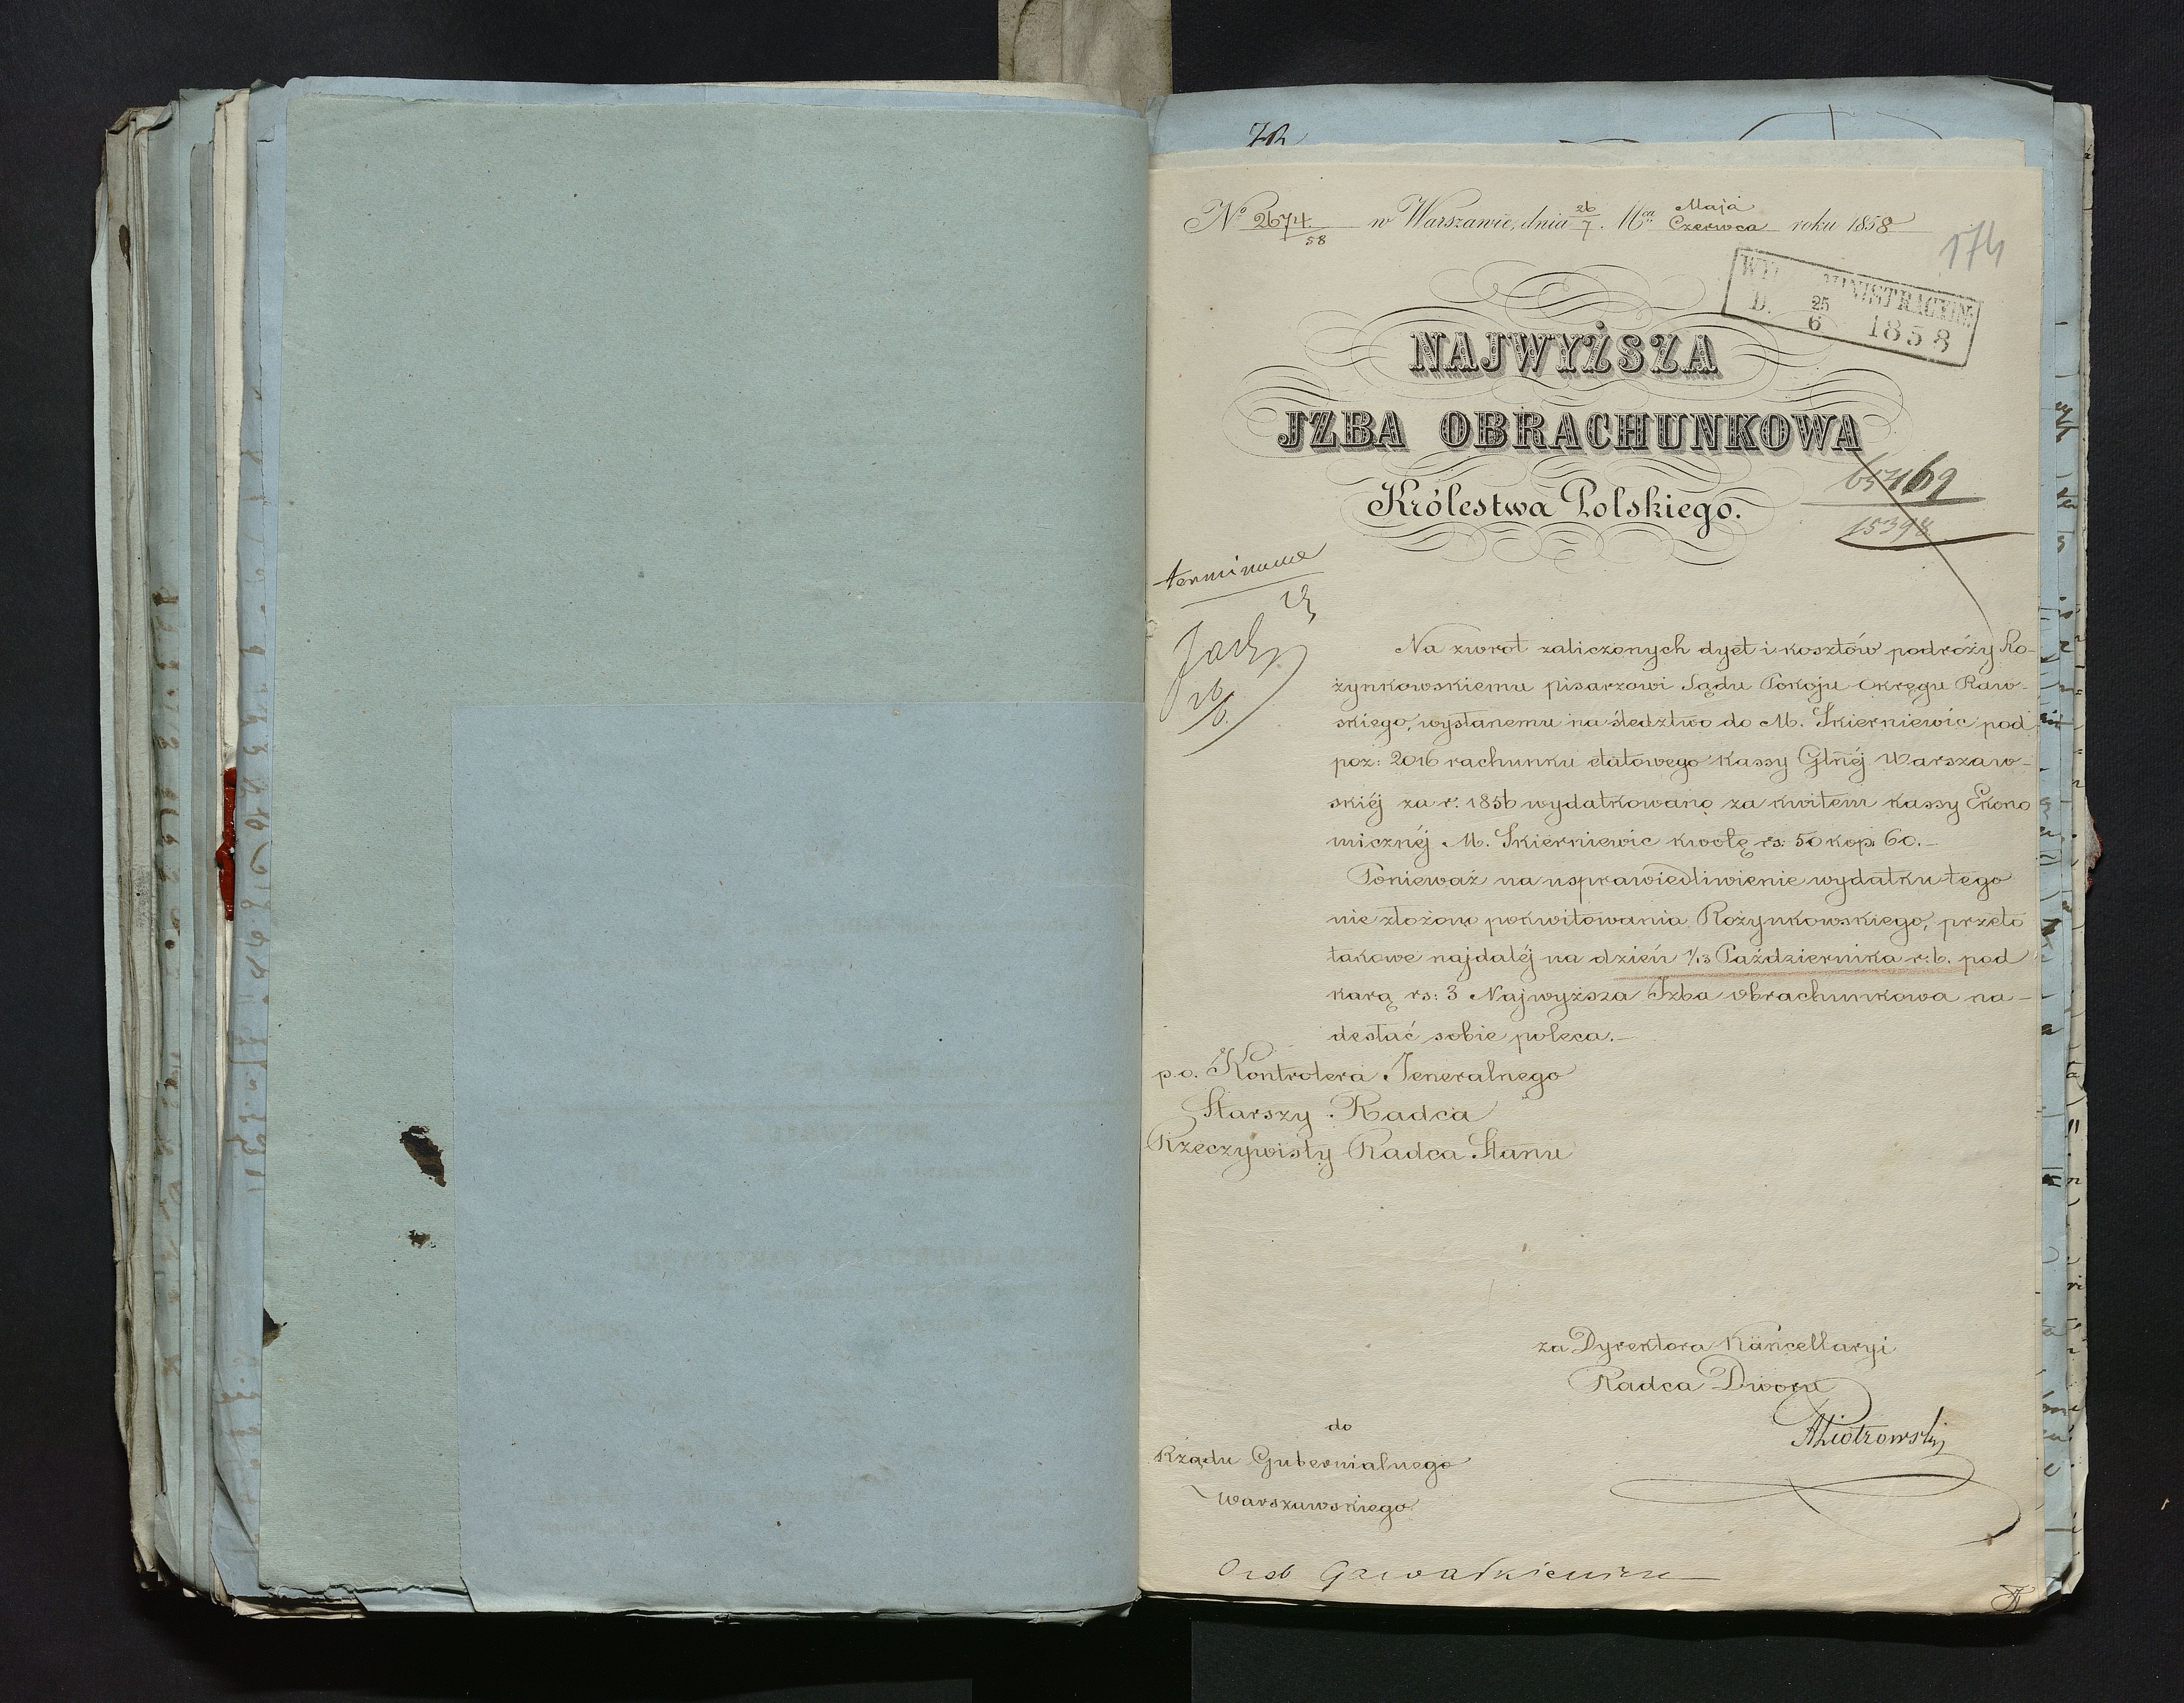 № 2674./58 w Warszawie, dnia 26/7 Mca Maja/Czerwca roku 1858
174
WY MINISTRACYJN.
D. 25/6 1858
NAJWYŻSZA
JZBA OBRACHUNKOWA
Królestwa Polskiego.
65469
15398
terminowe
26/6
Na zwrot zaliczonych dyet i kosztów podróży Ro-
żynkowskiemu pisarzowi Sądu Pokoju Okręgu Raw-
skiego, wysłanemu na śledztwo do M. Skierniewic pod
poz: 2016 rachunku etatowego Kassy Głnéj Warszaw-
skiéj za r. 1856 wydatkowano za kwitem Kassy Ekono
micznéj M. Skierniewic kwotę rs: 50 kop. 60.-
Ponieważ na usprawiedliwienie wydatku tego
nie złożono pokwitowania Rożynkowskiego, przeto
takowe najdaléj na dzień 1/13 Października r. b. pod
karą rs: 3 Najwyższa Izba obrachunkowa na-
desłać sobie poleca.-
p. o. Kontrolera Jeneralnego
Starszy Radca
Rzeczywisty Radca Stanu
za Dyrektora Kancellaryi
Radca Dworu
APiotrowski
do
Rządu Gubernialnego
Warszawskiego